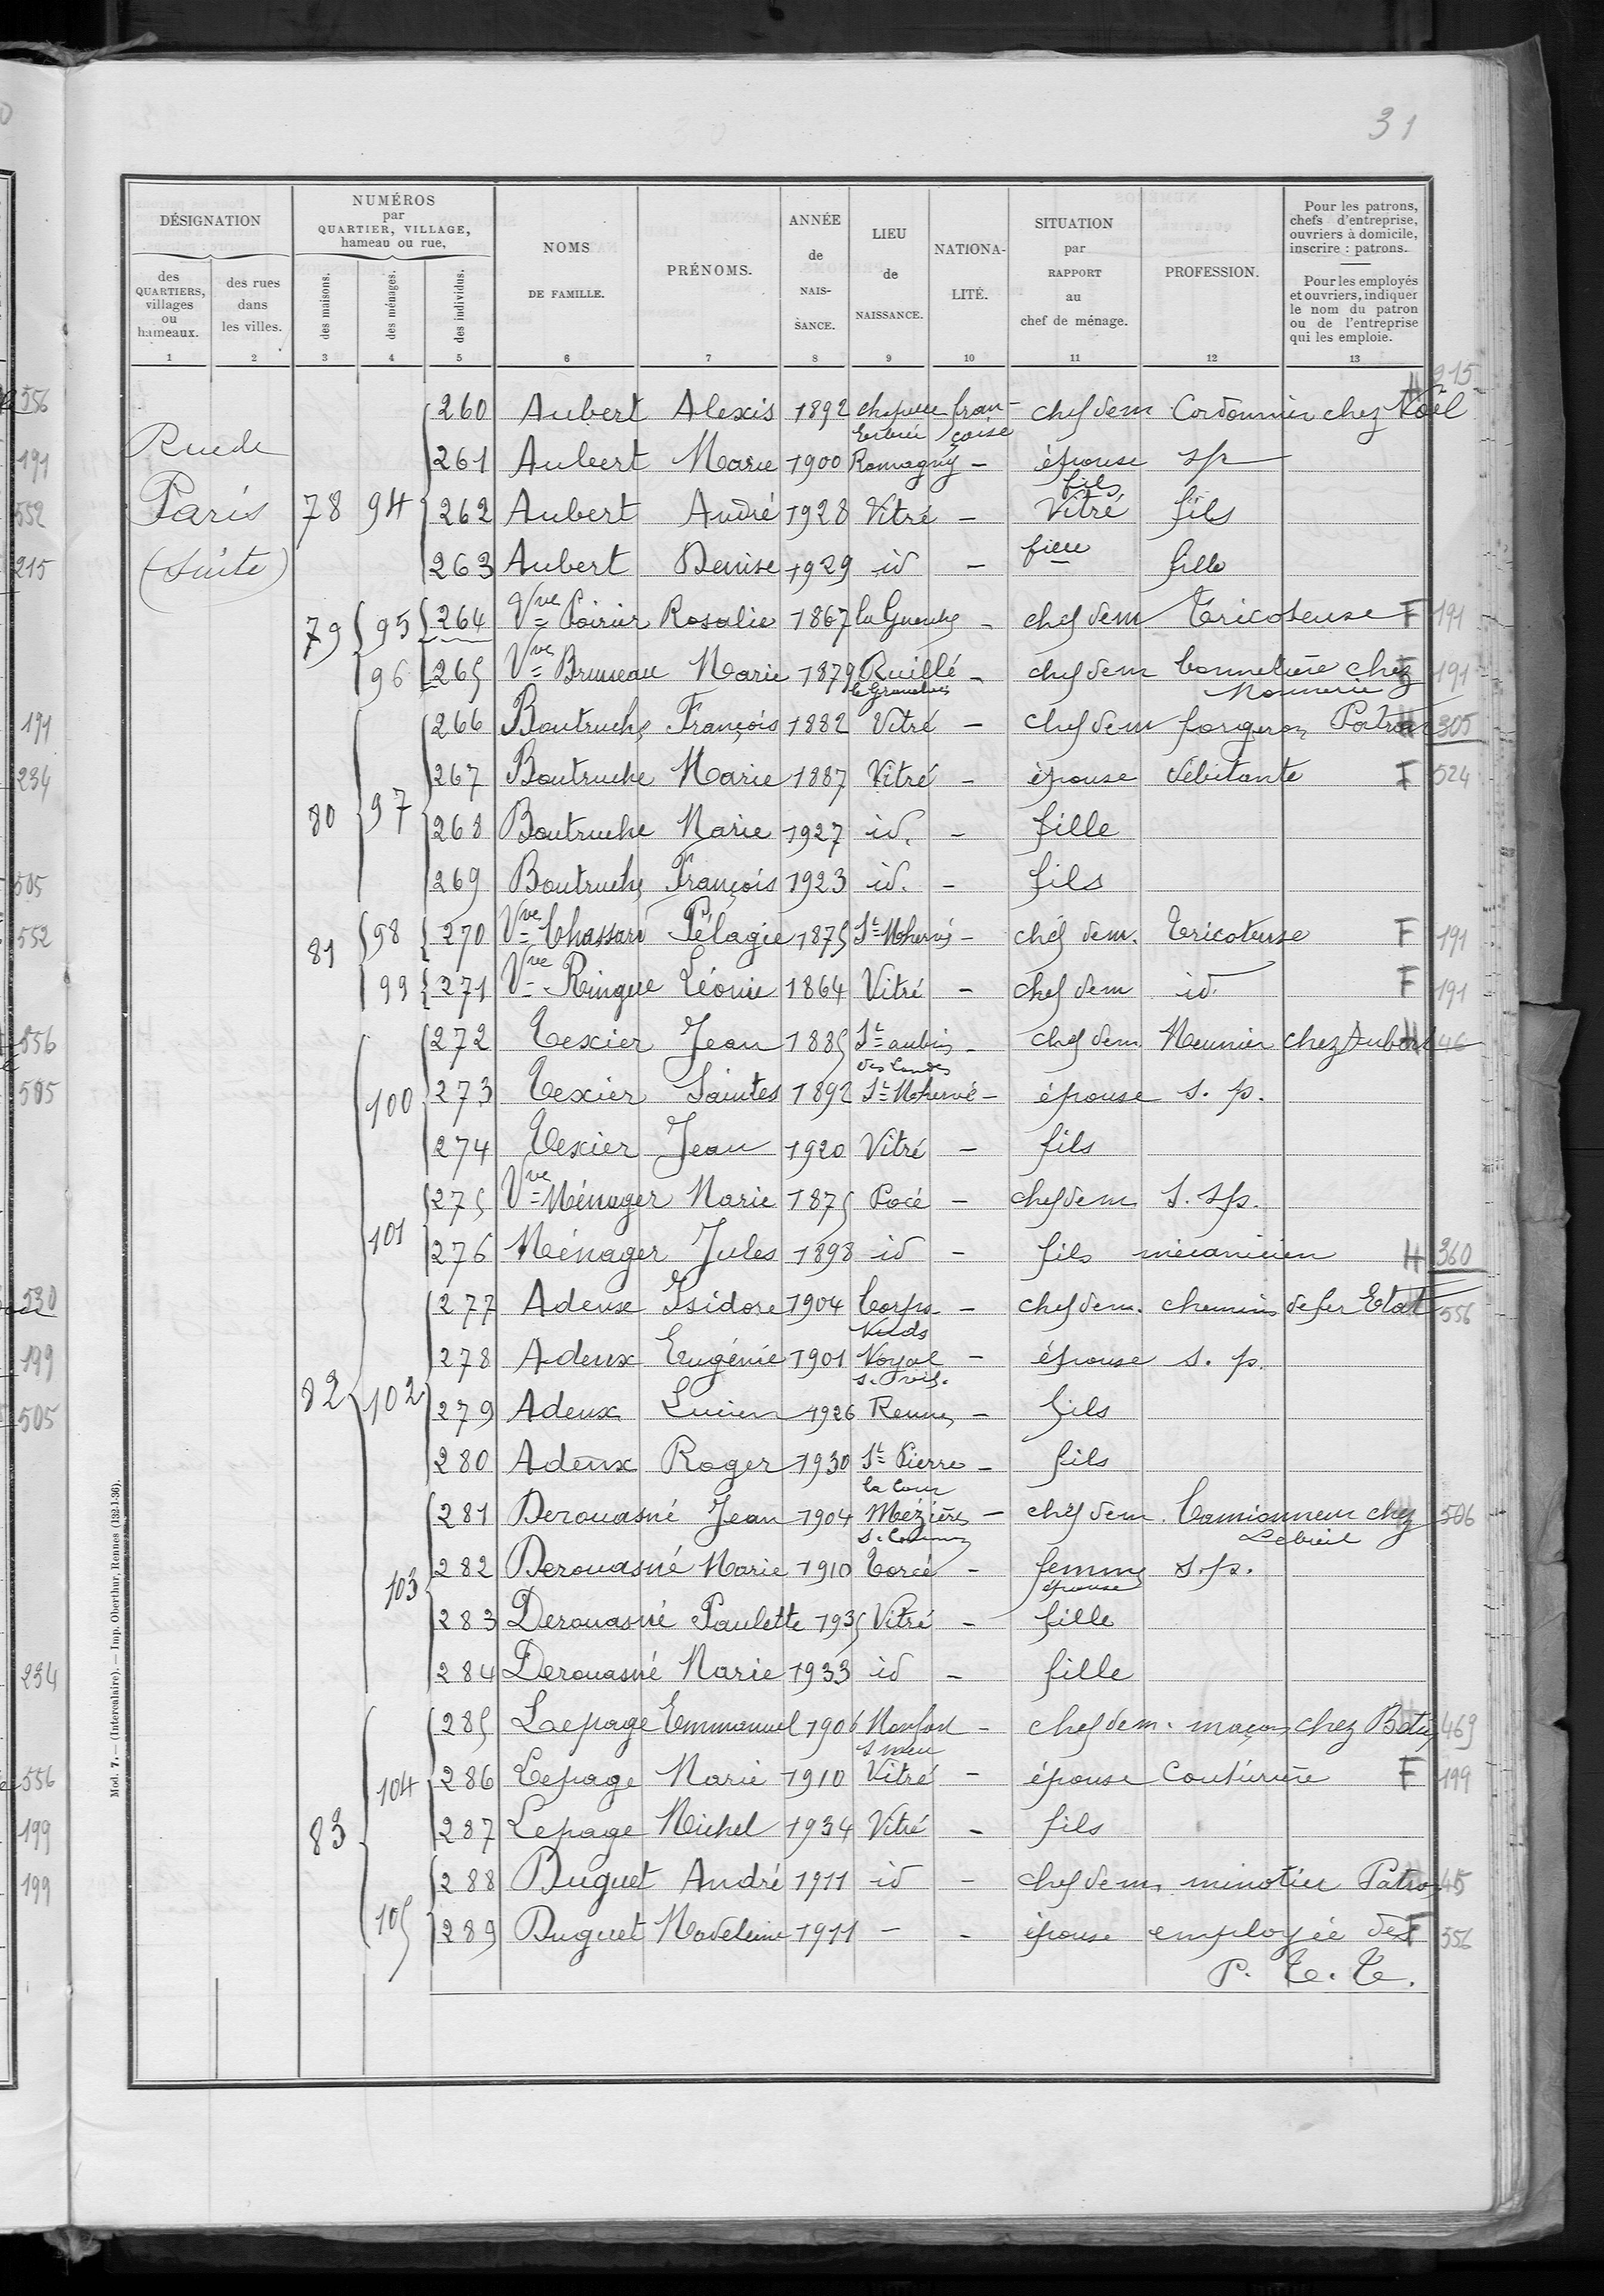 31
DÉSIGNATION
des QUARTIERS, villages ou hameaux.
des rues dans les villes.
NUMÉROS par QUARTIER, VILLAGE, hameau ou rue,
des maisons.
des ménages.
des individus.
NOMS DE FAMILLE.
PRÉNOMS.
ANNÉE de NAIS-SANCE.
LIEU de NAISSANCE.
NATIONA-LITÉ.
SITUATION par RAPPORT au chef de ménage.
PROFESSION.
Pour les patrons, chefs d'entreprise, ouvriers à domicile, inscrire : patrons.
Pour les employés et ouvriers, indiquer le nom du patron ou de l'entreprise qui les emploie.
1 2 3 4 5 6 7 8 9 10 11 12 13
Rue de
Paris
(suite)
260 Aubert Alexis 1892 chapelle Erbrée française chef de m Cordonnier chez Noël 215
261 Aubert Marie 1900 Romagny - épouse sp
78 94 262 Aubert André 1928 Vitré - fils Vitré fils
263 Aubert Denise 1929 id - fille fille
79 95 264 Vve Poirier Rosalie 1867 la Guerche - chef de m Tricoteuse F 191
96 265 Vve Bruneau Marie 1879 Ruillé le Gravelais - chef de m bonnetière chez Monnerie 191
266 Boutruche François 1882 Vitré - chef de m forgeron Patron 305
267 Boutruche Marie 1887 Vitré - épouse débitante F 524
80 97 268 Boutruche Marie 1927 id. - fille
269 Boutruche François 1923 id. - fils
81 98 270 Vve Chassard Pélagie 1875 St M'hervé - chef de m. Tricoteuse F 191
99 271 Vve Ringue Léonie 1864 Vitré - chef de m id. F 191
272 Texier Jean 1885 St aubin des landes - chef de m Meunier chez Aubert 46
100 273 Texier Saintes 1892 St M'hervé - épouse s. p.
274 Texier Jean 1920 Vitré - fils
275 Vve Ménager Marie 1875 Pocé - chef de m S. sp.
101 276 Ménager Jules 1898 id - fils mécanicien H 360
277 Adeux Isidore 1904 Corps Nuds - chef de m. chemins de fer Etat 556
278 Adeux Eugénie 1901 Noyal s. vil. - épouse s. p.
82 102 279 Adeux Lucien 1926 Rennes - fils
280 Adeux Roger 1930 St Pierre la Cour - fils
281 Derouasné Jean 1904 Mézières s. Couesnon - chef de m. Camionneur chez Lebreil 506
103 282 Derouasné Marie 1910 Torcé - femme épouse s.p.
283 Derouasné Paulette 1935 Vitré - fille
284 Derouasné Marie 1933 id - fille
285 Lepage Emmanuel 1906 Monfort s meu - chef de m. maçon chez 469
104 286 Lepage Marie 1910 Vitré - épouse Couturière F 199
83 287 Lepage Michel 1934 Vitré - fils
288 Duguet André 1911 id - chef de m. minotier Patron 45
105 289 Duguet Madeleine 1911 - - épouse employée des P. T. T. F 556
Mod. 7. — (Intercalaire). — Imp. Oberthur, Rennes (132-1-36).
556
191
552
215
191
234
505
552
556
505
530
199
505
234
556
199
199